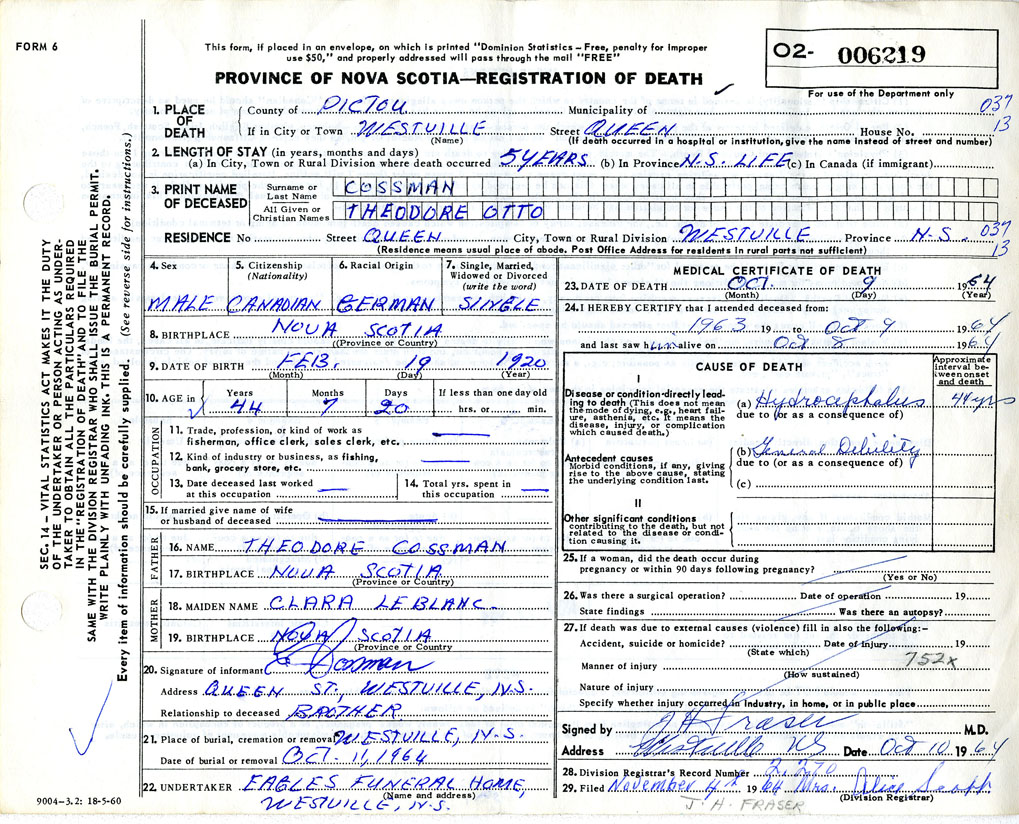 FORM 6
This form, if placed in an envelope, on which is printed "Dominion Statistics – Free, penalty for improper
use $50," and properly addressed will pass through the mail "FREE"
PROVINCE OF NOVA SCOTIA—REGISTRATION OF DEATH
02- 006219
For use of the Department only
1. PLACE OF DEATH
County of PICTOU Municipality of 037
If in City or Town WESTVILLE Street QUEEN House No. 13
(Name) (If death occurred in a hospital or institution, give the name instead of street and number)
2. LENGTH OF STAY (in years, months and days)
(a) In City, Town or Rural Division where death occurred 5 YEARS (b) In Province N.S. LIFE (c) In Canada (if immigrant)
3. PRINT NAME OF DECEASED
Surname or Last Name COSSMAN
All Given or Christian Names THEODORE OTTO
RESIDENCE No Street QUEEN City, Town or Rural Division WESTVILLE Province N-S. 037
(Residence means usual place of abode. Post Office Address for residents in rural parts not sufficient) 13
4. Sex 5. Citizenship (Nationality) 6. Racial Origin 7. Single, Married, Widowed or Divorced (write the word)
MALE CANADIAN GERMAN SINGLE
8. BIRTHPLACE NOVA SCOTIA
(Province or Country)
9. DATE OF BIRTH FEB. 19 1920
(Month) (Day) (Year)
10. AGE in Years Months Days If less than one day old
44 7 20 hrs. or min.
OCCUPATION
11. Trade, profession, or kind of work as
fisherman, office clerk, sales clerk, etc.
12. Kind of industry or business, as fishing,
bank, grocery store, etc.
13. Date deceased last worked
at this occupation
14. Total yrs. spent in
this occupation
15. If married give name of wife
or husband of deceased
FATHER
16. NAME THEODORE COSSMAN
17. BIRTHPLACE NOVA SCOTIA
(Province or Country)
MOTHER
18. MAIDEN NAME CLARA LEBLANC
19. BIRTHPLACE NOVA SCOTIA
(Province or Country
20. Signature of informant Cossman
Address QUEEN ST., WESTVILLE, N.S.
Relationship to deceased BROTHER
21. Place of burial, cremation or removal WESTVILLE, N.S.
Date of burial or removal OCT. 11, 1964
22. UNDERTAKER EAGLES FUNERAL HOME,
(Name and address)
WESTVILLE, N.S.
9004-3.2: 18-5-60
MEDICAL CERTIFICATE OF DEATH
23. DATE OF DEATH OCT. 9 1964
(Month) (Day) (Year)
24. I HEREBY CERTIFY that I attended deceased from:
1963 19 to Oct 9 1964
and last saw him alive on Oct 8 1964
CAUSE OF DEATH
Approximate interval between onset and death
I
Disease or condition directly leading to death (This does not mean the mode of dying, e.g., heart failure, asthenia, etc. It means the disease, injury, or complication which caused death.)
(a) Hydrocephalus 44 yrs
due to (or as a consequence of)
Antecedent causes
Morbid conditions, if any, giving rise to the above cause, stating the underlying condition last.
(b) General Debility
due to (or as a consequence of)
(c)
II
Other significant conditions
contributing to the death, but not related to the disease or condition causing it.
25. If a woman, did the death occur during
pregnancy or within 90 days following pregnancy?
(Yes or No)
26. Was there a surgical operation? Date of operation 19
State findings Was there an autopsy?
27. If death was due to external causes (violence) fill in also the following:–
Accident, suicide or homicide? Date of injury 19
(State which) 752x
Manner of injury
(How sustained)
Nature of injury
Specify whether injury occurred in Industry, in home, or in public place
Signed by J H Fraser M.D.
Address Westville NS Date Oct 10 1964
28. Division Registrar's Record Number
29. Filed November 4th 1964 Mrs. Alice
(Division Registrar)
J. H. FRASER
SEC. 14 – VITAL STATISTICS ACT MAKES IT THE DUTY
OF THE UNDERTAKER OR PERSON ACTING AS UNDER-
TAKER TO OBTAIN ALL THE PARTICULARS REQUIRED
IN THE "REGISTRATION OF DEATH" AND TO FILE THE
SAME WITH THE DIVISION REGISTRAR WHO SHALL ISSUE THE BURIAL PERMIT.
WRITE PLAINLY WITH UNFADING INK. THIS IS A PERMANENT RECORD.
Every item of information should be carefully supplied. (See reverse side for instructions.)